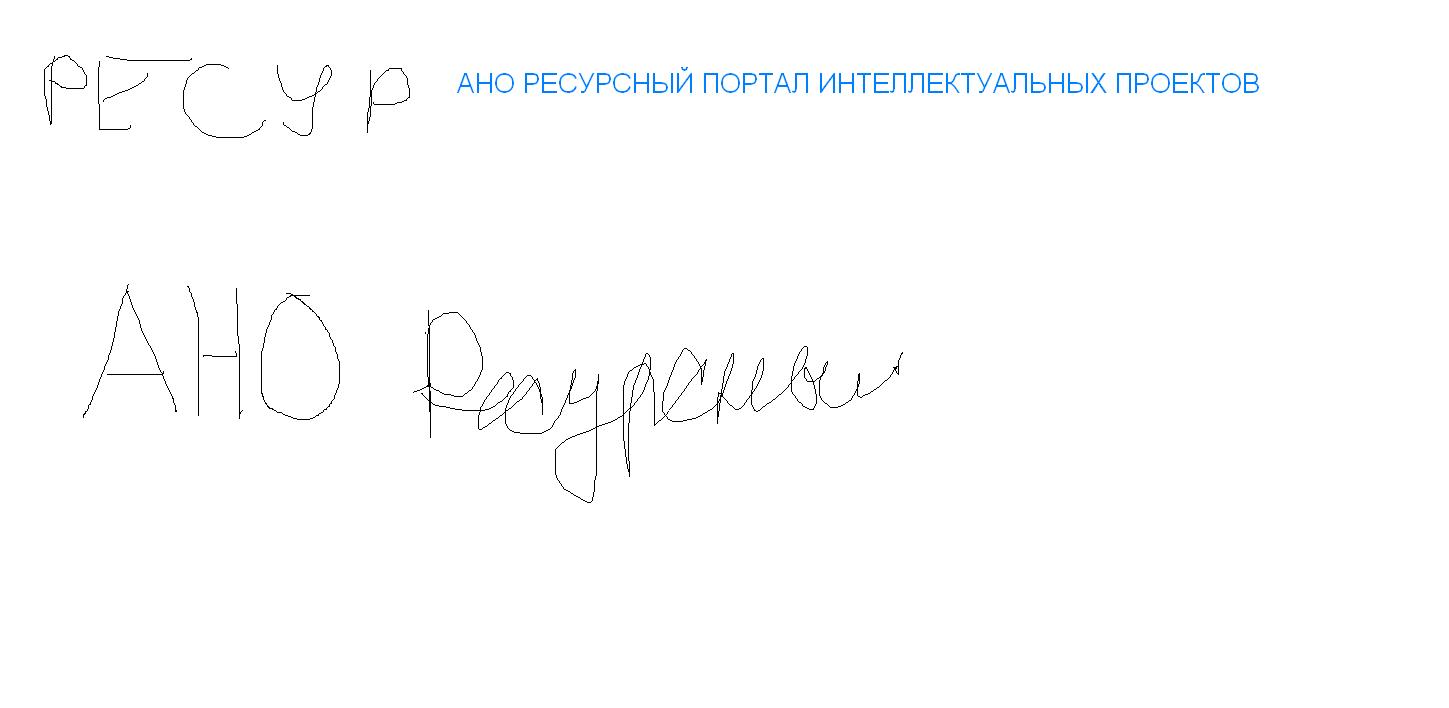 РЕСУР АНО РЕСУРСНЫЙ ПОРТАЛ ИНТЕЛЛЕКТУАЛЬНЫХ ПРОЕКТОВ
АНО Ресурсный